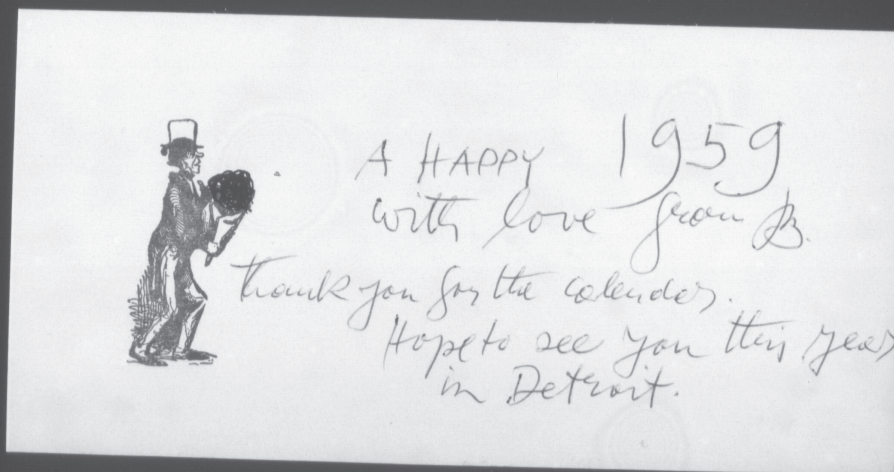 A HAPPY 1959
with love from B.
Thank you for the calender.
Hope to see you this year
in Detroit.